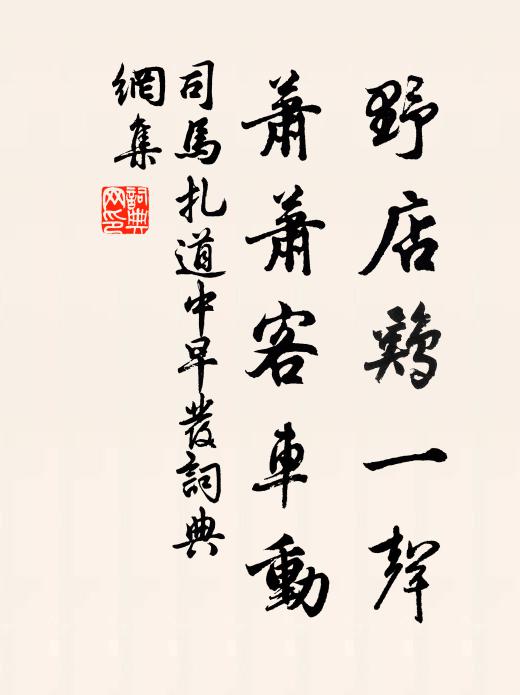 野店鷄一聲
蕭蕭客車動
司馬扎道中早發詞典
網集
詞典网印